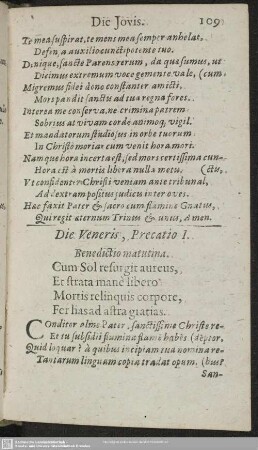 Die Jovis. 109
Te mea suspirat, te mens mea semper anhelat,
Defin auxilio cunctipotente tuo.
Denique, sancte Parens rerum, da quæ sumus, ut
Dicimus extremum voce gemente vale, (cum.
Migremus fidei dono constanter amicti,
Mors pandit sanctu ad tua regna fores.
Interea me conserva, ne crimina patrem
Sobrius at vivam corde animoq; vigil.
Et mandatorum studiosus in orbe tuorum
In Christo moriar cum venit hora mori.
Namque hora incerta est, sed mors certissima cun-
Hora est à mortis libera nulla metu. (ctis,
Ut confidenter Christi veniam ante tribunal,
Ad dextram positus judicis inter oves.
Hac faxit Pater & sacro cum flamine Gnatus,
Qui regit æternum Trinus & unus, Amen.
Die Veneris, Precatio I.
Benedictio matutina.
Cum Sol resurgit aureus,
Et strata manè libero
Mortis relinquis corpore,
Fer has ad astra gratias.
Conditor alme Pater, sanctissime Christe re-
Et tu subsidii flumina flamē habēs (deptor,
Quid loquar? à quibus incipiam tua nomina re-
Tantarum linguam copia tradat opum. (bus?
San-